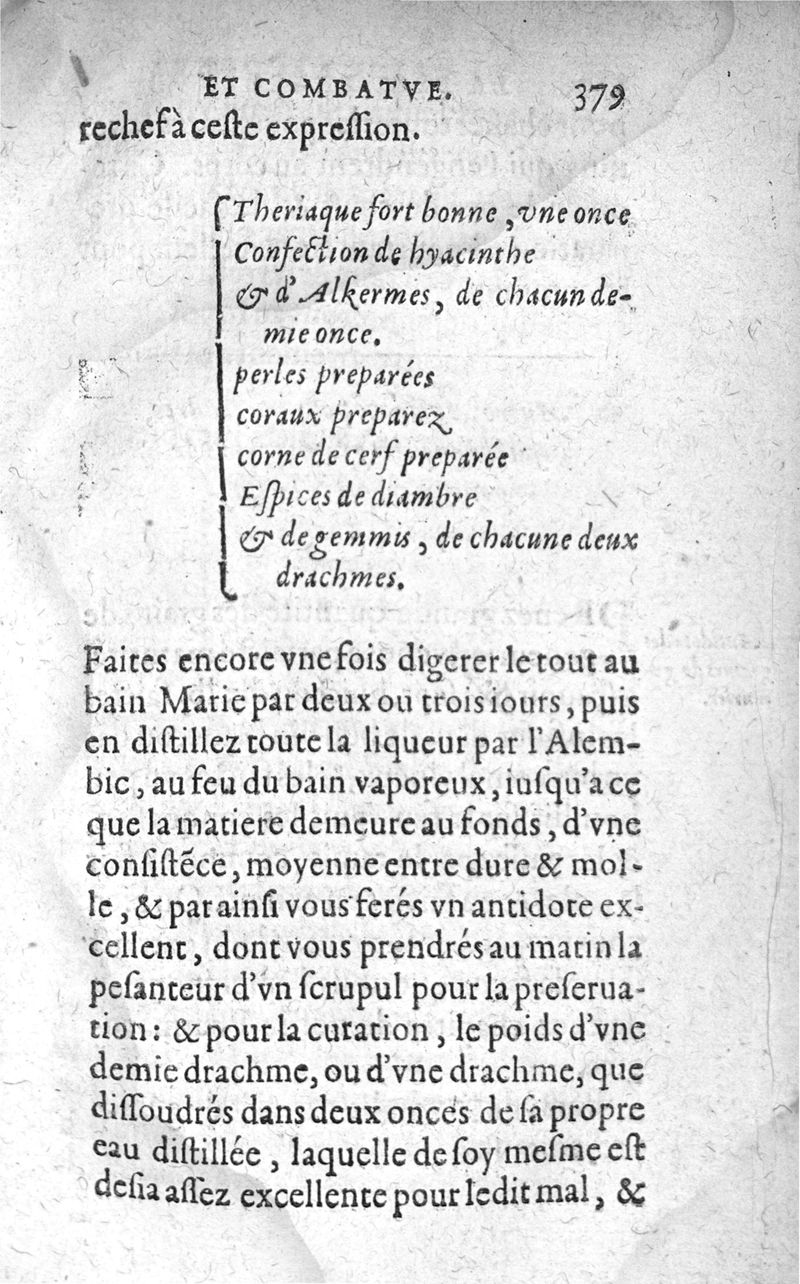 ET COMBATVE. 379
rechef à ceſte expreſſion.
Theriaque fort bonne, vne once
Confection de hyacinthe
& d'Alkermes, de chacun de-
mie once.
perles preparées
coraux preparez
corne de cerf preparée
Eſpices de diambre
& de gemmis, de chacune deux
drachmes.
Faites encore vne fois digerer le tout au
bain Marie par deux ou trois iours, puis
en diſtillez toute la liqueur par l'Alem-
bic, au feu du bain vaporeux, iuſqu'a ce
que la matiere demeure au fonds, d'vne
conſiſtẽce, moyenne entre dure & mol-
le, & par ainſi vous ferés vn antidote ex-
cellent, dont vous prendrés au matin la
peſanteur d'vn ſcrupul pour la preſerua-
tion: & pour la curation, le poids d'vne
demie drachme, ou d'vne drachme, que
diſſoudrés dans deux onces de ſa propre
eau diſtillée, laquelle de ſoy meſme eſt
deſia aſſez excellente pour ledit mal, &